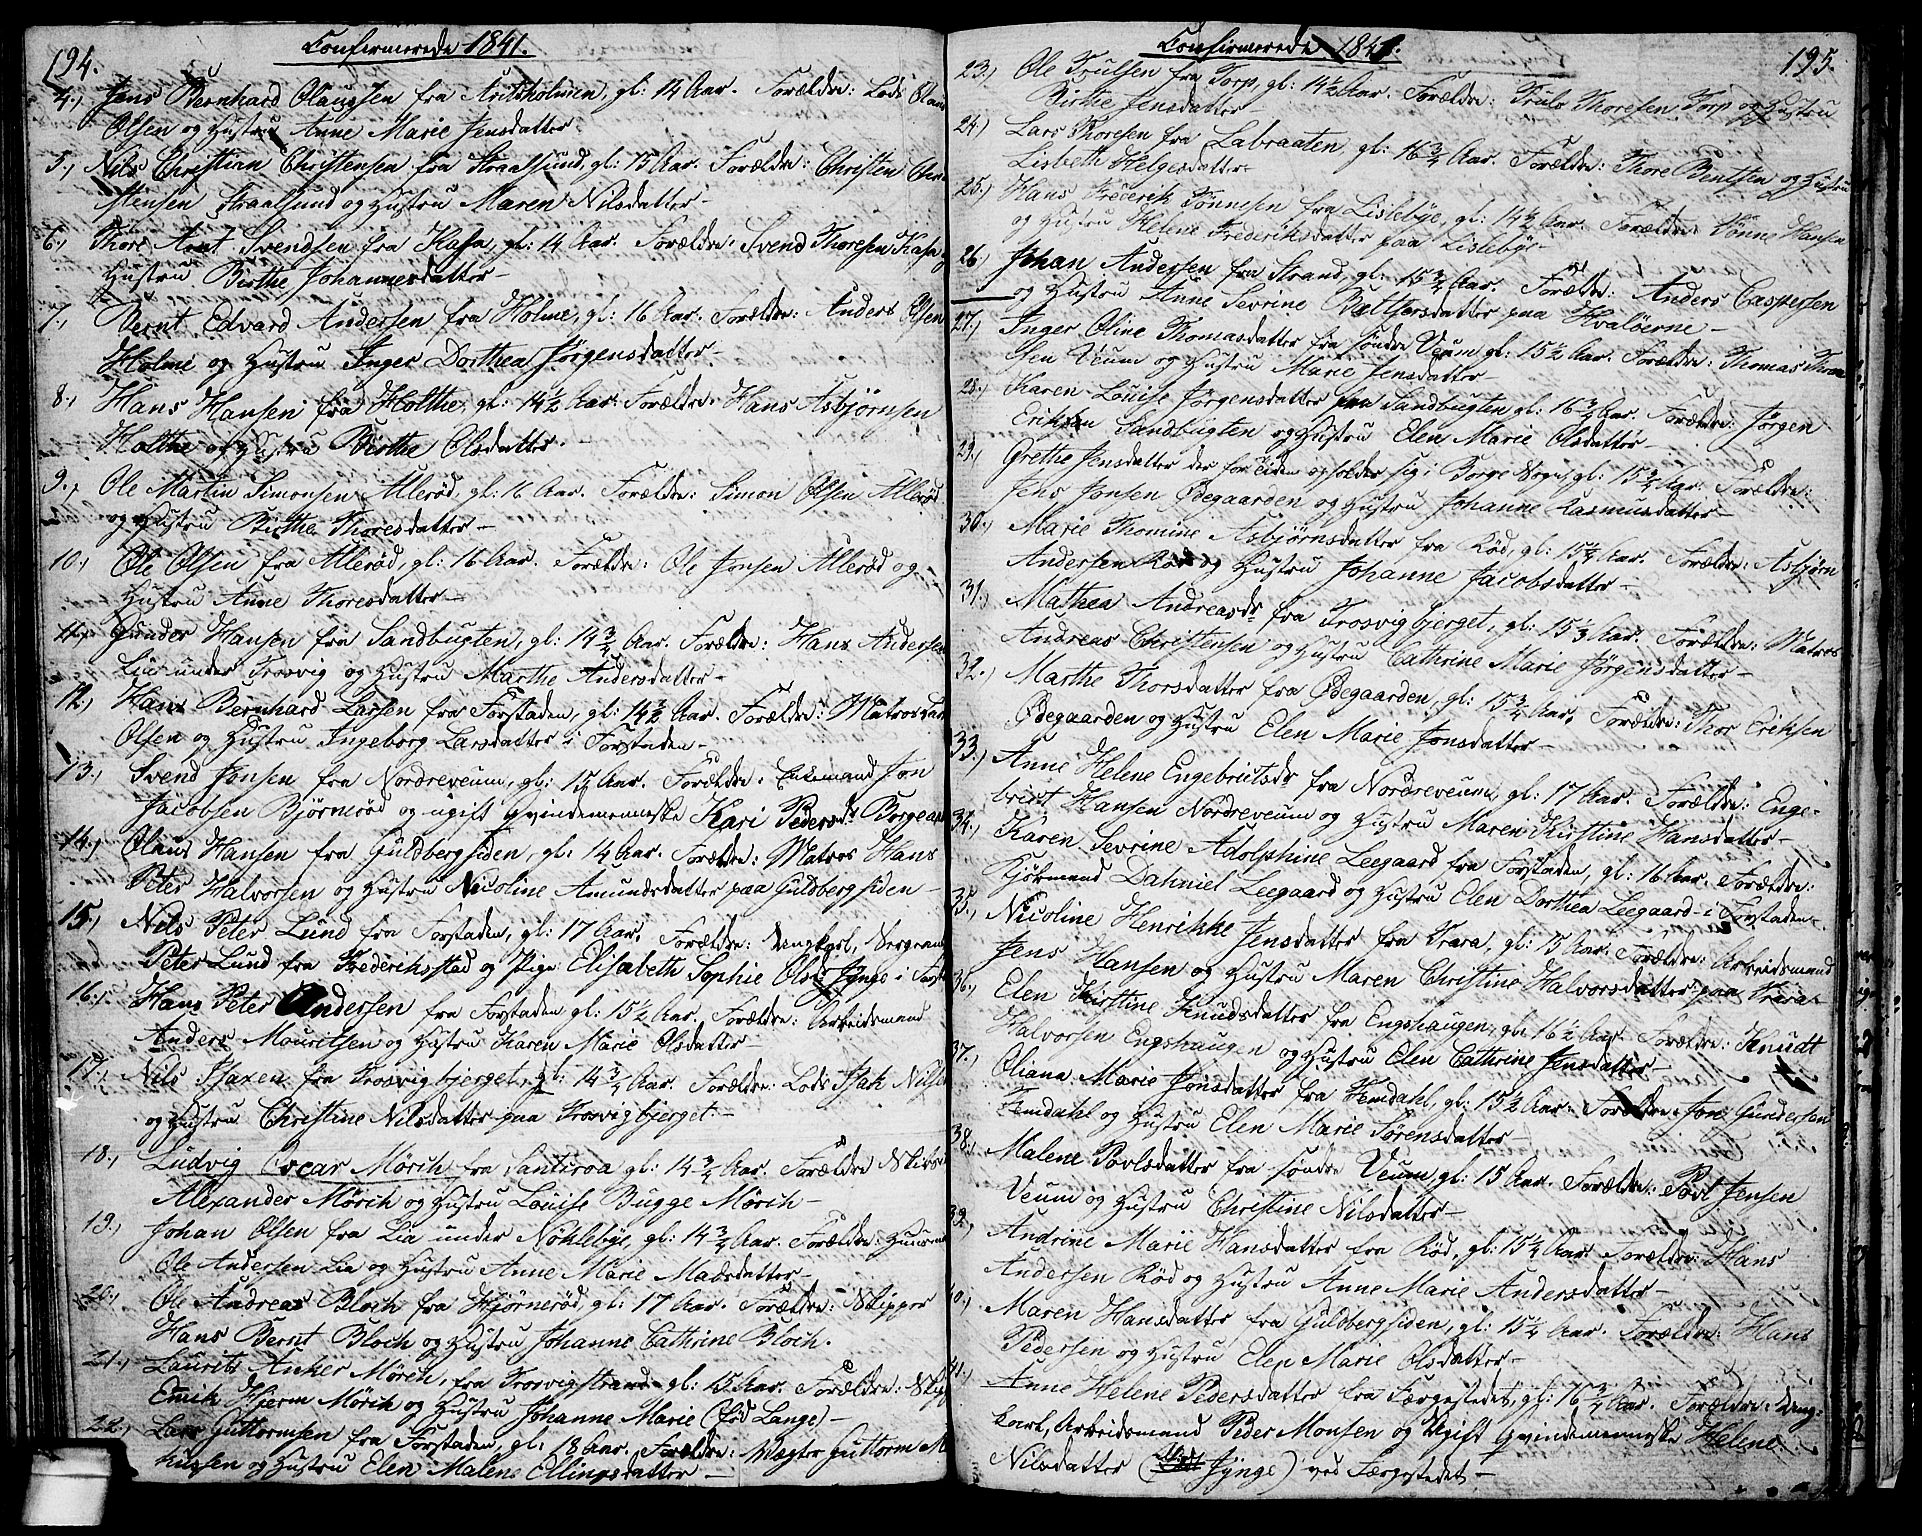 194.
Confirmerede 1841.
4.) Jens Bernhard Olaussen fra Aritsholmen, gl: 14 Aar. Forældre: Lods Olaus
Olsen og Hustru Anne Marie Jensdatter
5.) Nils Christian Christensen fra Straalsund, gl: 15 Aar. Forældre: Christen Chri
stensen Straalsund og Hustru Maren Nilsdatter
6.) Thore Arnt Svendsen fra Kasa, gl: 14 Aar. Forældre: Svend Thoresen Kasa og
Hustru Birthe Johannesdatter
7.) Bernt Edvard Andersen fra Holme, gl: 16 Aar. Forældre: Anders Olsen
Holme og Hustru Inger Dorthea Jørgensdatter
8.) Hans Hansen fra Holthe, gl: 14½ Aar. Forældre: Hans Asbjørnsen
Holthe og Hustru Birthe Olsdatter.
9.) Ole Martin Simonsen Allerød, gl: 16 Aar. Forældre: Simon Olsen Allerød
og Hustru Birthe Thoresdatter
10.) Ole Olsen fra Allerød, gl: 16 Aar. Forældre: Ole Jonsen Allerød og
Hustru Anne Thoresdatter
11.) Gunder Hansen fra Sandbugten, gl: 14¾ Aar. Forældre: Hans Andersen
Lia under Trosvig og Hustru Marthe Andersdatter
12.) Hans Bernhard Larsen fra Forstaden, gl: 14¾ Aar. Forældre: Matros Lars
Olsen og Hustru Ingeborg Larsdatter i Forstaden
13.) Svend Jonsen fra Nordreveum, gl: 15¼ Aar. Forældre: Enkemand Jon
Jacobsen Bjørnerød og ugift Qvindemenneske Kari Pedersd:
14.) Olaus Hansen fra Guldbergsiden, gl: 14 Aar. Forældre: Matros Hans
Peter Halvorsen og Hustru Nicoline Amundsdatter paa Guldbergsiden
15.) Nils Peter Lund fra Forstaden, gl: 17 Aar. Forældre: Ungkarl,
Peter Lund fra Frederiksstad og Pige Elisabeth Sophie Olsd: Jynge i
16.) Hans Peter Andersen fra Forstaden gl: 15½ Aar. Forældre: Arbeidsmand
Anders Mouritsen og Hustru Karen Marie Olsdatter
17.) Nils Isaxen fra Trosvigbjerget, gl: 14¾ Aar. Forældre: Lods Isak Nilsen
og Hustru Christine Nilsdatter paa Trosvigbjerget
18.) Ludvig Oscar Mörch fra gl: 14¾ Aar. Forældre
Alexander Mörch og Hustru Louise Bugge Mörch
19.) Johan Olsen fra Lia under Nøklebye, gl: 14¾ Aar. Forældre: Huusmand
Ole Andersen Lia og Hustru Anne Marie Madsdatter
20.) Ole Andreas Bloch fra Hjørnerød, gl: 17 Aar. Forældre: Skipper
Hans Bernt Bloch og Hustru Johanne Cathrine Bloch.
21.) Laurits Anker Mörch, fra Trosvigstrand gl: 15 Aar. Forældre:
Hjerm Mörch og Hustru Johanne Marie (fød Lange)
22.) Lars Guttormsen fra Forstaden, gl: 18 Aar. Forældre: Vægter Guttorm
og Hustru Elen Malene Ellingsdatter
195.
Confirmerede 1841.
23.) Ole Trulsen fra Torp, gl: 14½ Aar. Forældre: Truls Thoresen Torp og Hustru
Birthe Jensdatter
24.) Lars Thoresen fra Labraaten gl: 16¾ Aar. Forældre: Thore Bentsen og Hustru
Lisbeth Helgesdatter
25.) Hans Frederik Tønnesen fra Lislebye, gl: 14½ Aar. Forældre: Tønne Hansen
og Hustru Helene Frederiksdatter paa Lislebye
26.) Johan Andersen fra Strand, gl: 15¾ Aar. Forældre: Anders Caspersen
og Hustru Anne Sevrine paa Hvaløerne
27.) Inger Oline Thomasdatter fra søndre Veum gl: 15½ Aar. Forældre: Thomas
sen Veum og Hustru Marie Jensdatter
28.) Karen Louise Jørgensdatter fra Sandbugten gl: 16¾ Aar. Forældre: Jørgen
Eriksen Sandbugten og Hustru Elen Marie Olsdatter
29.) Grethe Jensdatter der for tiden opholder sig i Borge Sogn, gl: 15¾ Aar. Forældre:
Jens Jonsen Ødegaarden og Hustru Johanne Rasmusdatter
30.) Marie Thomine Asbjørnsdatter fra Rød, gl: 15¼ Aar. Forældre: Asbjørn
Andersen Rød og Hustru Johanne Jacobsdatter
31.) Mathea Andreasdr fra Trosvigbjerget, gl: 15⅓ Aar. Forældre: Matros
Andreas Christensen og Hustru Cathrine Marie Jørgensdatter
32.) Marthe Thorsdatter fra Ødegaarden, gl: 15¾ Aar. Forældre: Thor Eriksen
Ødegaarden og Hustru Elen Marie Jonsdatter
33.) Anne Helene Engebretsdr fra Nordreveum, gl: 17 Aar. Forældre: Enge-
bret Hansen Nordreveum og Hustru Maren Kirstine Hansdatter
34.) Karen Sevrine Adolphine Leegaard fra Forstaden, gl: 16 Aar. Forældre:
Kjøbmand Dahniel Leegaard og Hustru Elen Dorthea Leegaard i Forstaden
35.) Nicoline Henrikke Jensdatter fra Krara, gl: 15 Aar. Forældre: Arbeidsmand
Jens Hansen og Hustru Maren Christine Halvorsdatter paa Krara
36.) Elen Kirstine Knudsdatter fra Engshaugen, gl: 16½ Aar. Forældre: Knudt
Halvorsen Engshaugen og Hustru Elen Cathrine Jensdatter
37.) Oliana Marie Jonsdatter fra Femdahl, gl: 15½ Aar. Forældre: Jon Gundersen
Femdahl og Hustru Elen Marie Sørensdatter
38.) Malene Povlsdatter fra søndre Veum, gl: 15 Aar. Forældre: Povl Jensen
Veum og Hustru Christine Nilsdatter
39.) Andrine Marie Hansdatter fra Rød, gl: 15¼ Aar. Forældre: Hans
Andersen Rød og Hustru Anne Marie Andersdatter
40.) Maren Hansdatter fra Guldbergsiden, gl: 15¼ Aar. Forældre: Hans
Pedersen og Hustru Elen Marie Olsdatter
41.) Anne Helene Pedersdatter fra Færgestedet, gl: 16¾ Aar. Forældre: Ung-
karl, Arbeidsmand Peder Monsen og Ugift Qvindemenneske Helene
Nilsdatter (Jynge) ved Færgestedet